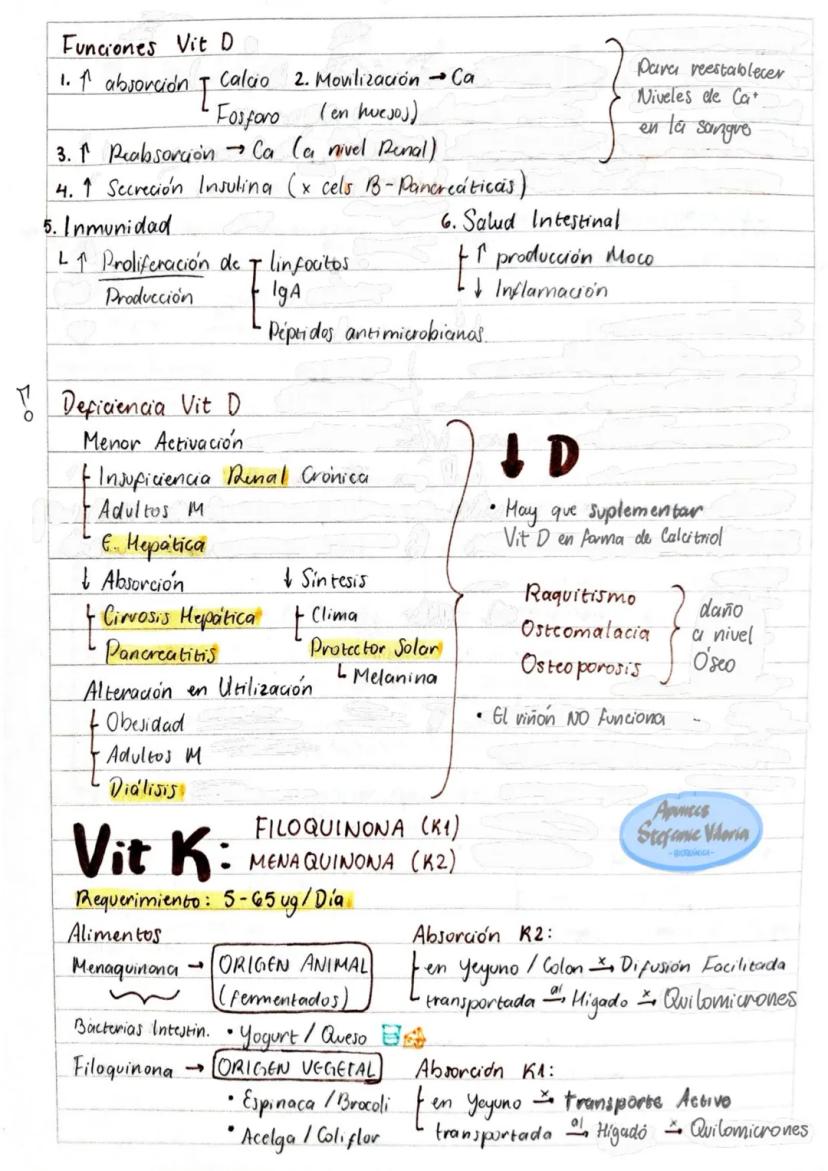 Funciones Vit D
1. ↑ absorción Calcio 2. Movilización → Ca
Fosforo (en huesos)
Para reestablecer
Niveles de Ca⁺
en la sangre
3. ↑ Reabsorción → Ca (a nivel Renal)
4. ↑ Secreción Insulina (x cels B-Pancreáticas)
5. Inmunidad
↑ Proliferación de linfocitos
Producción IgA
Péptidos antimicrobianos
6. Salud Intestinal
↑ producción Moco
↓ Inflamación
Deficiencia Vit D
Menor Activación
Insuficiencia Renal Crónica
Adultos M
E. Hepática
↓ Absorción
Cirrosis Hepática
Pancreatitis
↓ Síntesis
Clima
Protector Solar
Melanina
Alteración en Utilización
Obesidad
Adultos M
Diálisis
↓ D
• Hay que suplementar
Vit D en forma de Calcitriol
Raquitismo
Osteomalacia
Osteoporosis
daño
a nivel
Óseo
• El riñón NO funciona
Apuntes
Stefanie Viloria
Vit K: FILOQUINONA (K1)
MENAQUINONA (K2)
Requerimiento: 5-65 ug/Día
Alimentos
Menaquinona → ORIGEN ANIMAL
(fermentados)
Bacterias Intestin. • Yogurt / Queso
Filoquinona → ORIGEN VEGETAL
• Espinaca / Brocoli
• Acelga / Coliflor
Absorción K2:
en Yeyuno / Colon x→ Difusión Facilitada
transportada al→ Higado x→ Quilomicrones
Absorción K1:
en Yeyuno x→ transporte Activo
transportada al→ Higadó x→ Quilomicrones